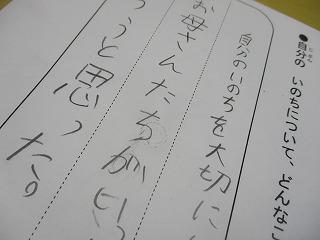 ●自分の いのちについて、どんなこ
自分のいのちを大切に
お母さんたちが
うと思った。